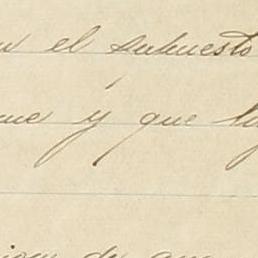 en el supuesto
me y que
de que